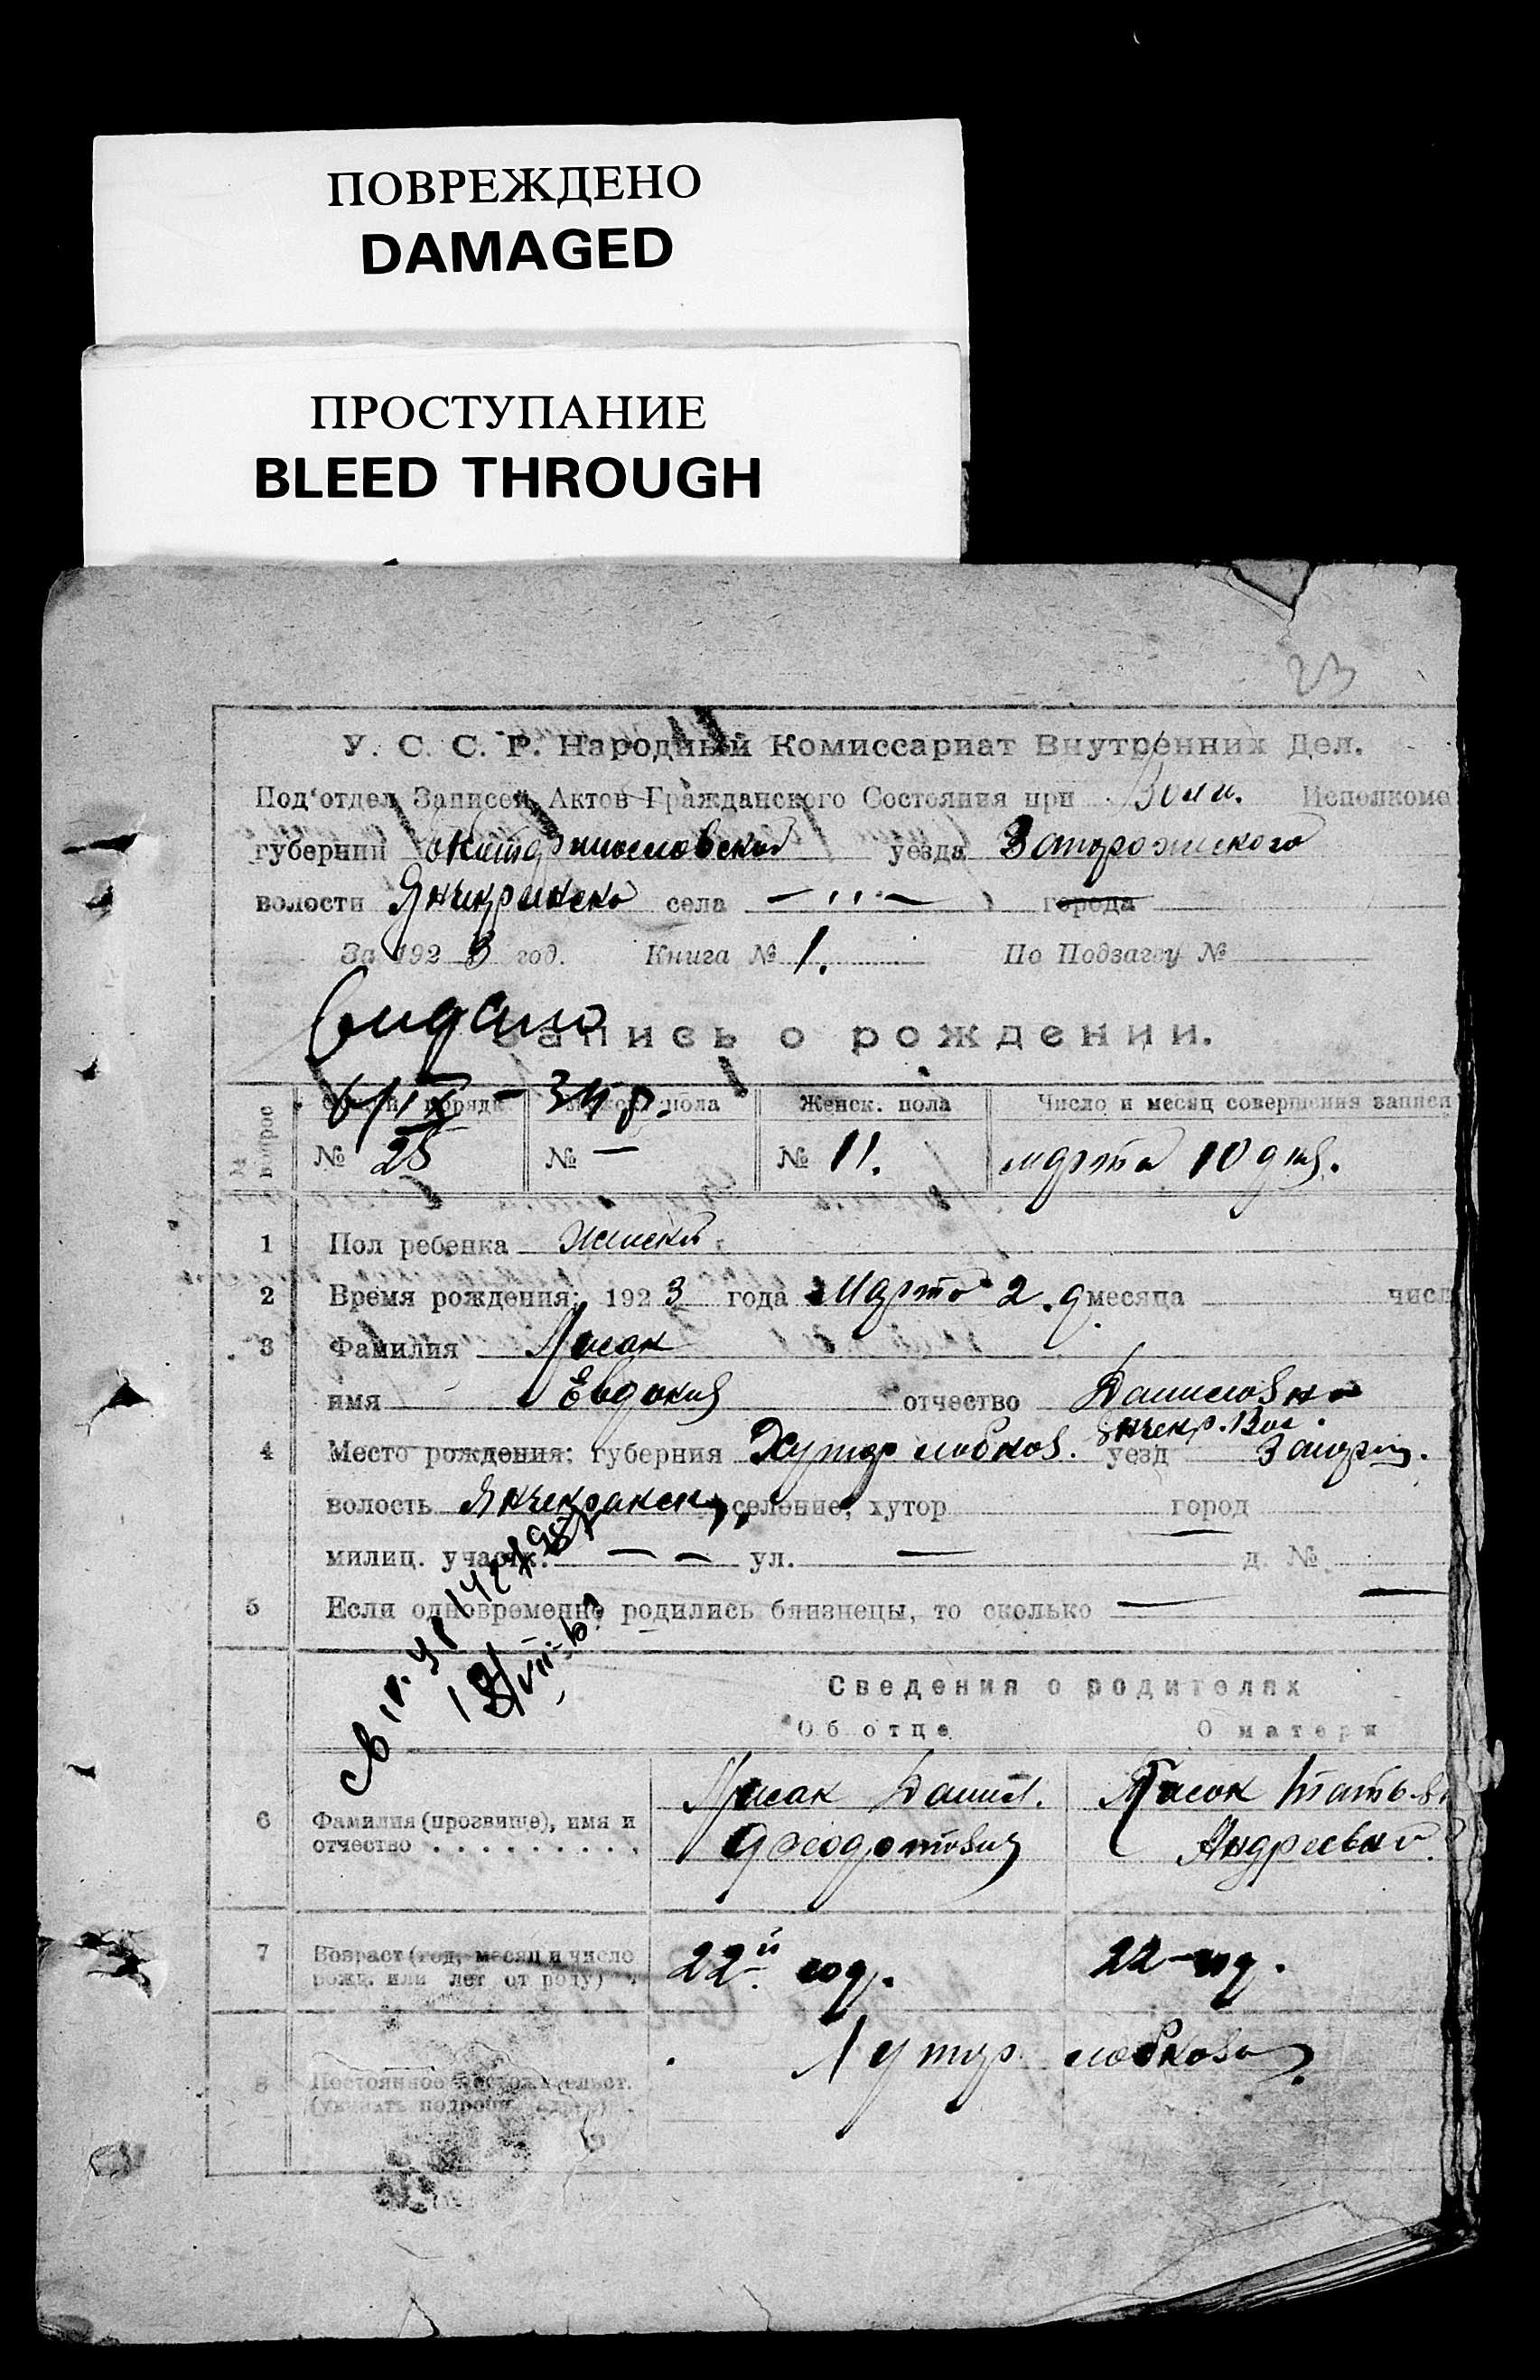 ПОВРЕЖДЕНО
DAMAGED
ПРОСТУПАНИЕ
BLEED THROUGH
23
У. С. С. Р. Народный Комиссариат Внутренних Дел.
Под'отдел Записей Актов Гражданского Состояния при Вол. Исполкоме
губернии Екатеринославской уезда Запорожского
волости Янчекракской села — ,, — города
За 1923 год. Книга № 1. По Подзагсу №
Запись о рождении.
6/IX - 34 г.
порядк. Мужск. пола Женск. пола Число и месяц совершения записи
№ 25 № — № 11. марта 10 дня.
1 Пол ребенка женский
2 Время рождения: 1923 года Марта 2. д. месяца числ
3 Фамилия Лисак
имя Евдокия отчество Даниловна
Янчекр. Вол.
4 Место рождения: губерния Хутор уезд Запорож.
волость Янчекракск. селение, хутор город —
милиц. участк. — — ул. — д. №
5 Если одновременно родились близнецы, то сколько — —
Сведения о родителях
Об отце О матери
6 Фамилия (прозвище), имя и отчество
Лисак Данил. Федотович
Лисак Татьяна Андреевна
7 Возраст (год, месяц и число рожд. или лет от роду)
22й год. 22-год.
8 Постоянное местожительст. (указать подробн. адрес)
Хутор